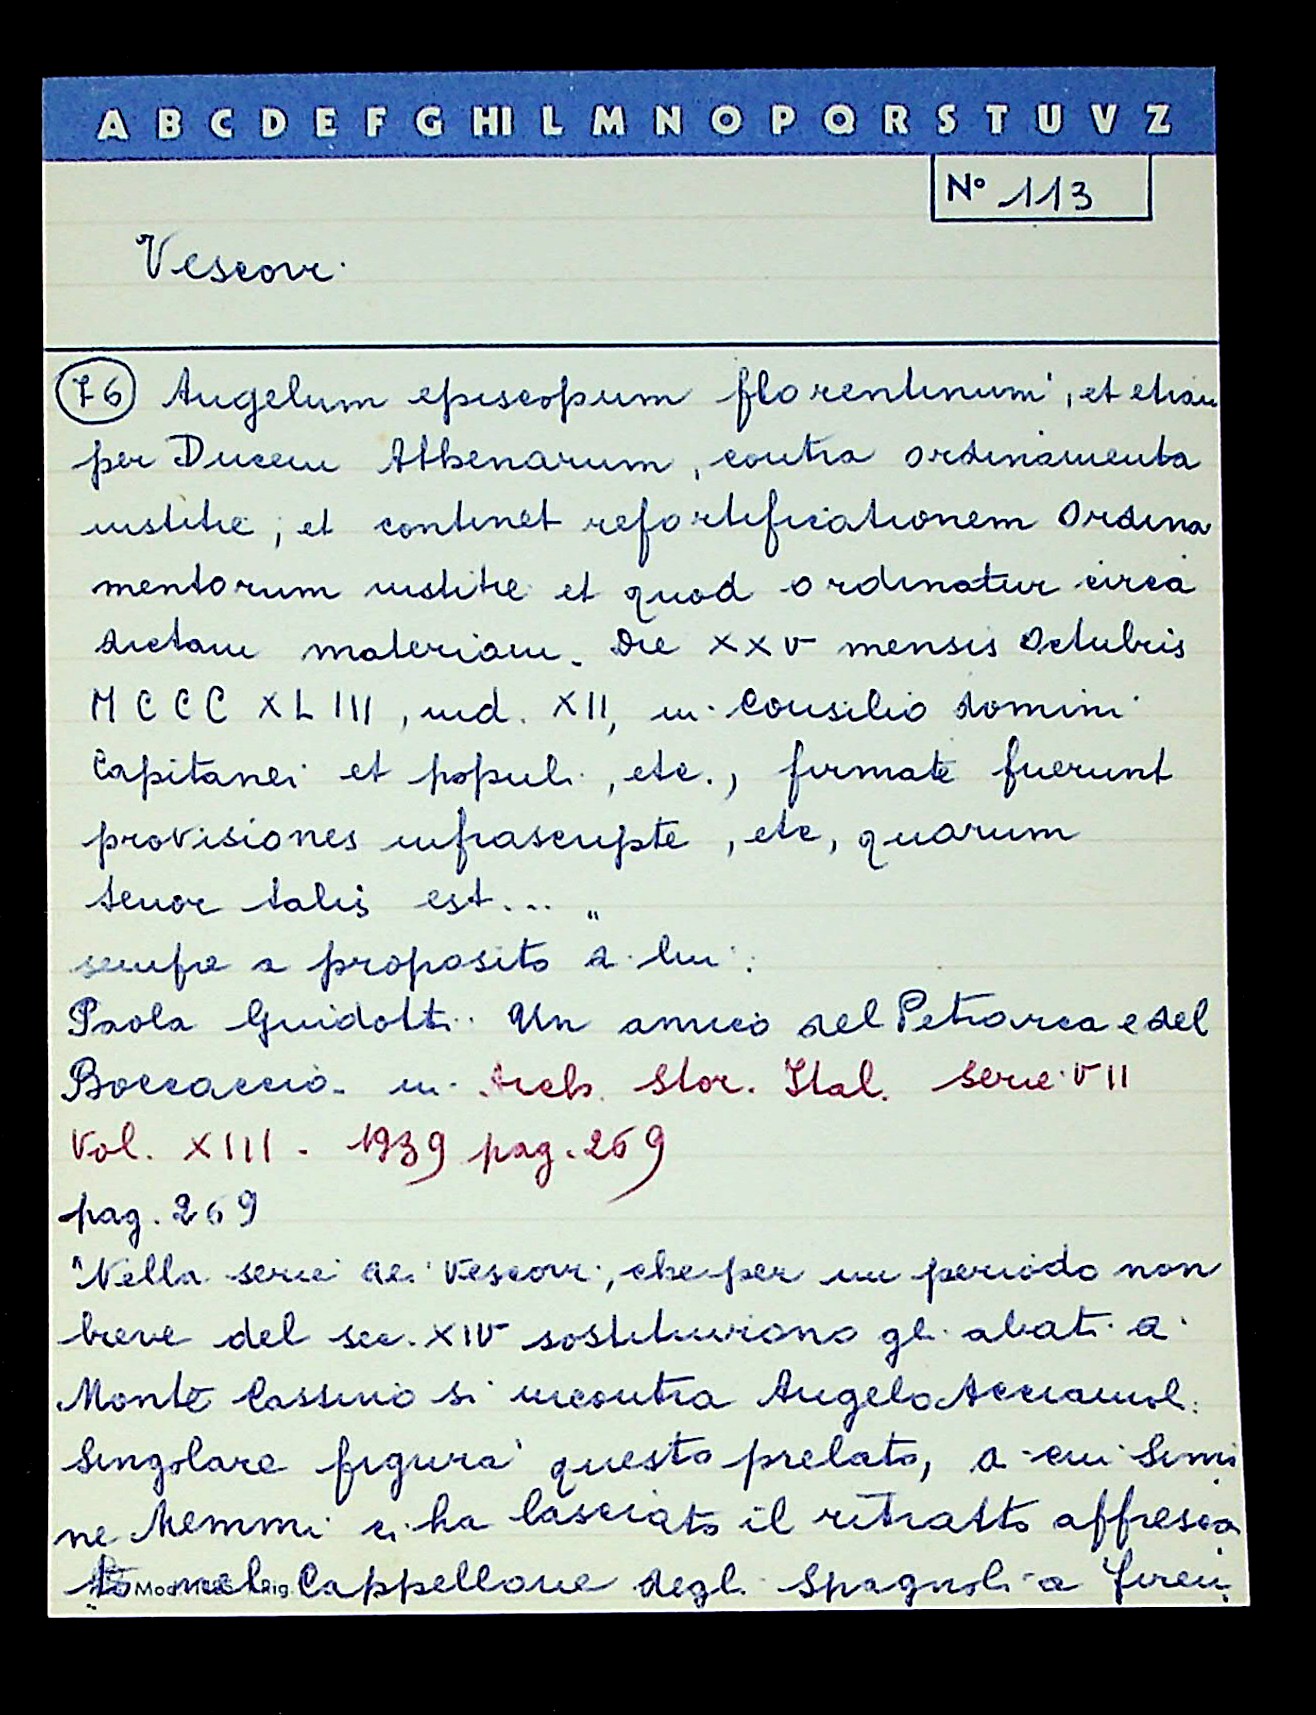 A B C D E F G HI L M N O P Q R S T U V Z
N° 113
Vescovi
76 Angelum episcopum florentinum, et etiam
per Ducem Athenarum, contra ordinamenta
iustitie, et continet refortificationem Ordina
mentorum iustitie et quod ordinatur circa
dictam materiam. Die XXV mensis Octubris
MCCCXLIII, ind. XII, in Consilio domini
Capitanei et populi, etc., firmate fuerunt
provisiones infrascripte, etc, quarum
tenor talis est... "
sempre a proposito di lui:
Paola Guidotti. Un amico del Petrarca e del
Boccaccio. in Arch. Stor. Ital. serie VII
Vol. XIII. 1939 pag. 269
pag. 269
"Nella serie dei Vescovi, che per un periodo non
breve del sec. XIV sostituirono gli abati di
Monte Cassino si incontra Angelo Acciaiuoli.
Singolare figura questo prelato, di cui Simo
ne Memmi ci ha lasciato il ritratto affresca
to nel Cappellone degli Spagnoli a Firen
Mod. Rig.